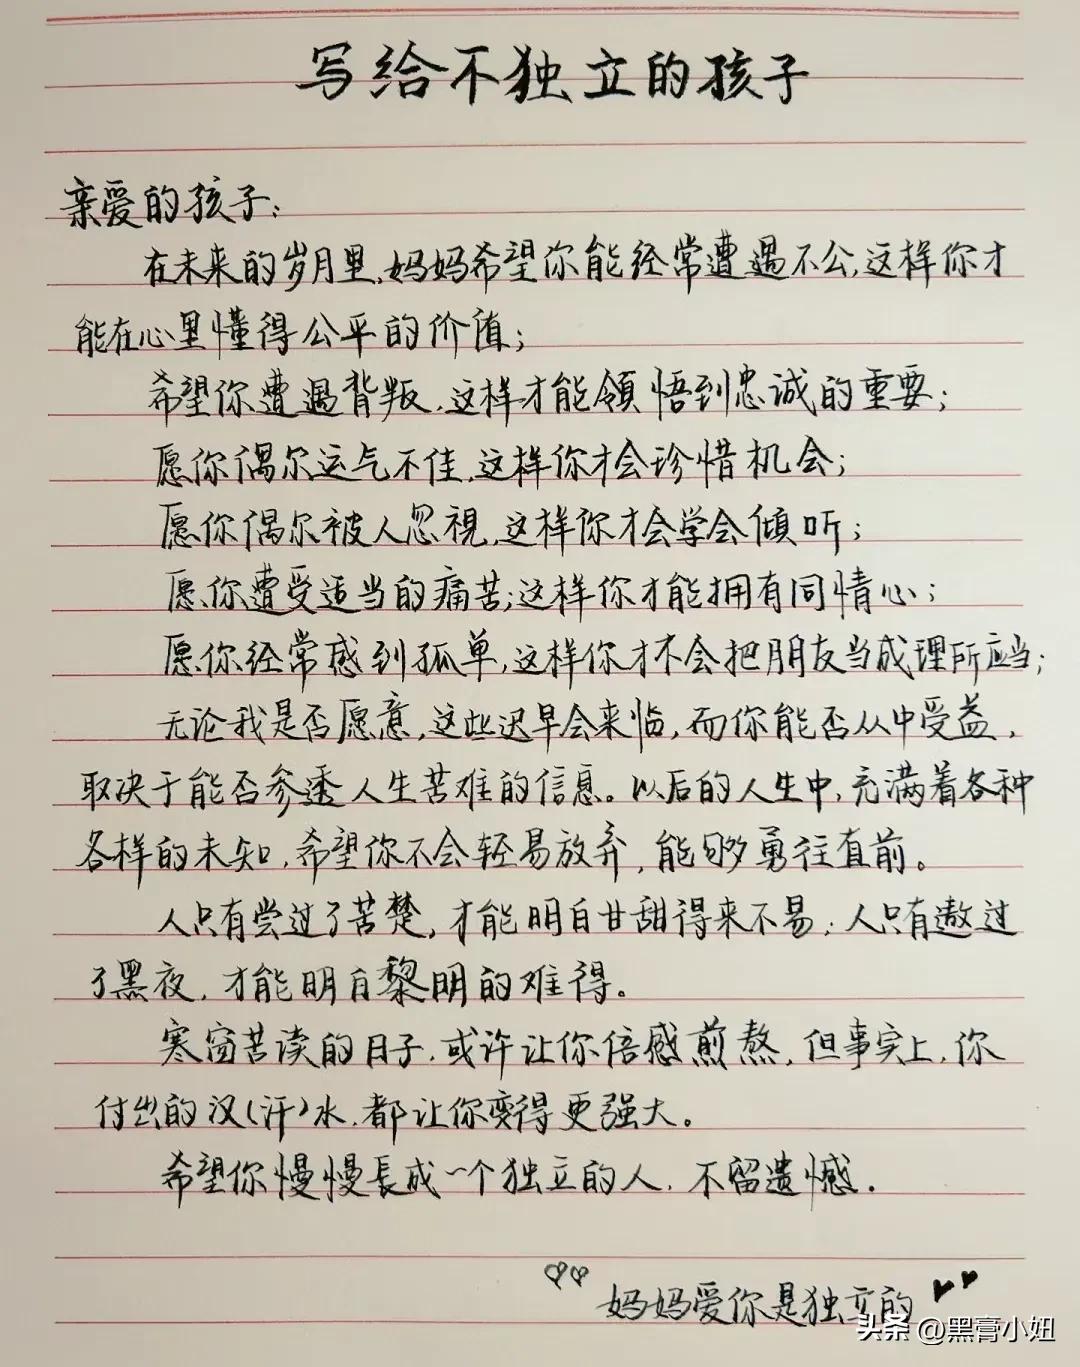 写给不独立的孩子
亲爱的孩子：
在未来的岁月里，妈妈希望你能经常遭遇不公，这样你才
能在心里懂得公平的价值；
希望你遭遇背叛，这样才能领悟到忠诚的重要；
愿你偶尔运气不佳，这样你才会珍惜机会；
愿你偶尔被人忽視，这样你才会学会倾听；
愿你遭受适当的痛苦；这样你才能拥有同情心；
愿你经常感到孤单，这样你才不会把朋友当成理所应当；
无论我是否愿意，这些迟早会来临，而你能否从中受益，
取决于能否参透人生苦难的信息。以后的人生中，充满着各种
各样的未知，希望你不会轻易放弃，能够勇往直前。
人只有尝过了苦楚，才能明白甘甜得来不易；人只有遨过
了黑夜，才能明白黎明的难得。
寒窗苦读的日子，或许让你倍感煎熬，但事实上，你
付出的汉(汗)水，都让你变得更强大。
希望你慢慢長成一个独立的人，不留遗憾．
妈妈爱你是独立的
头条 @黑膏小妞